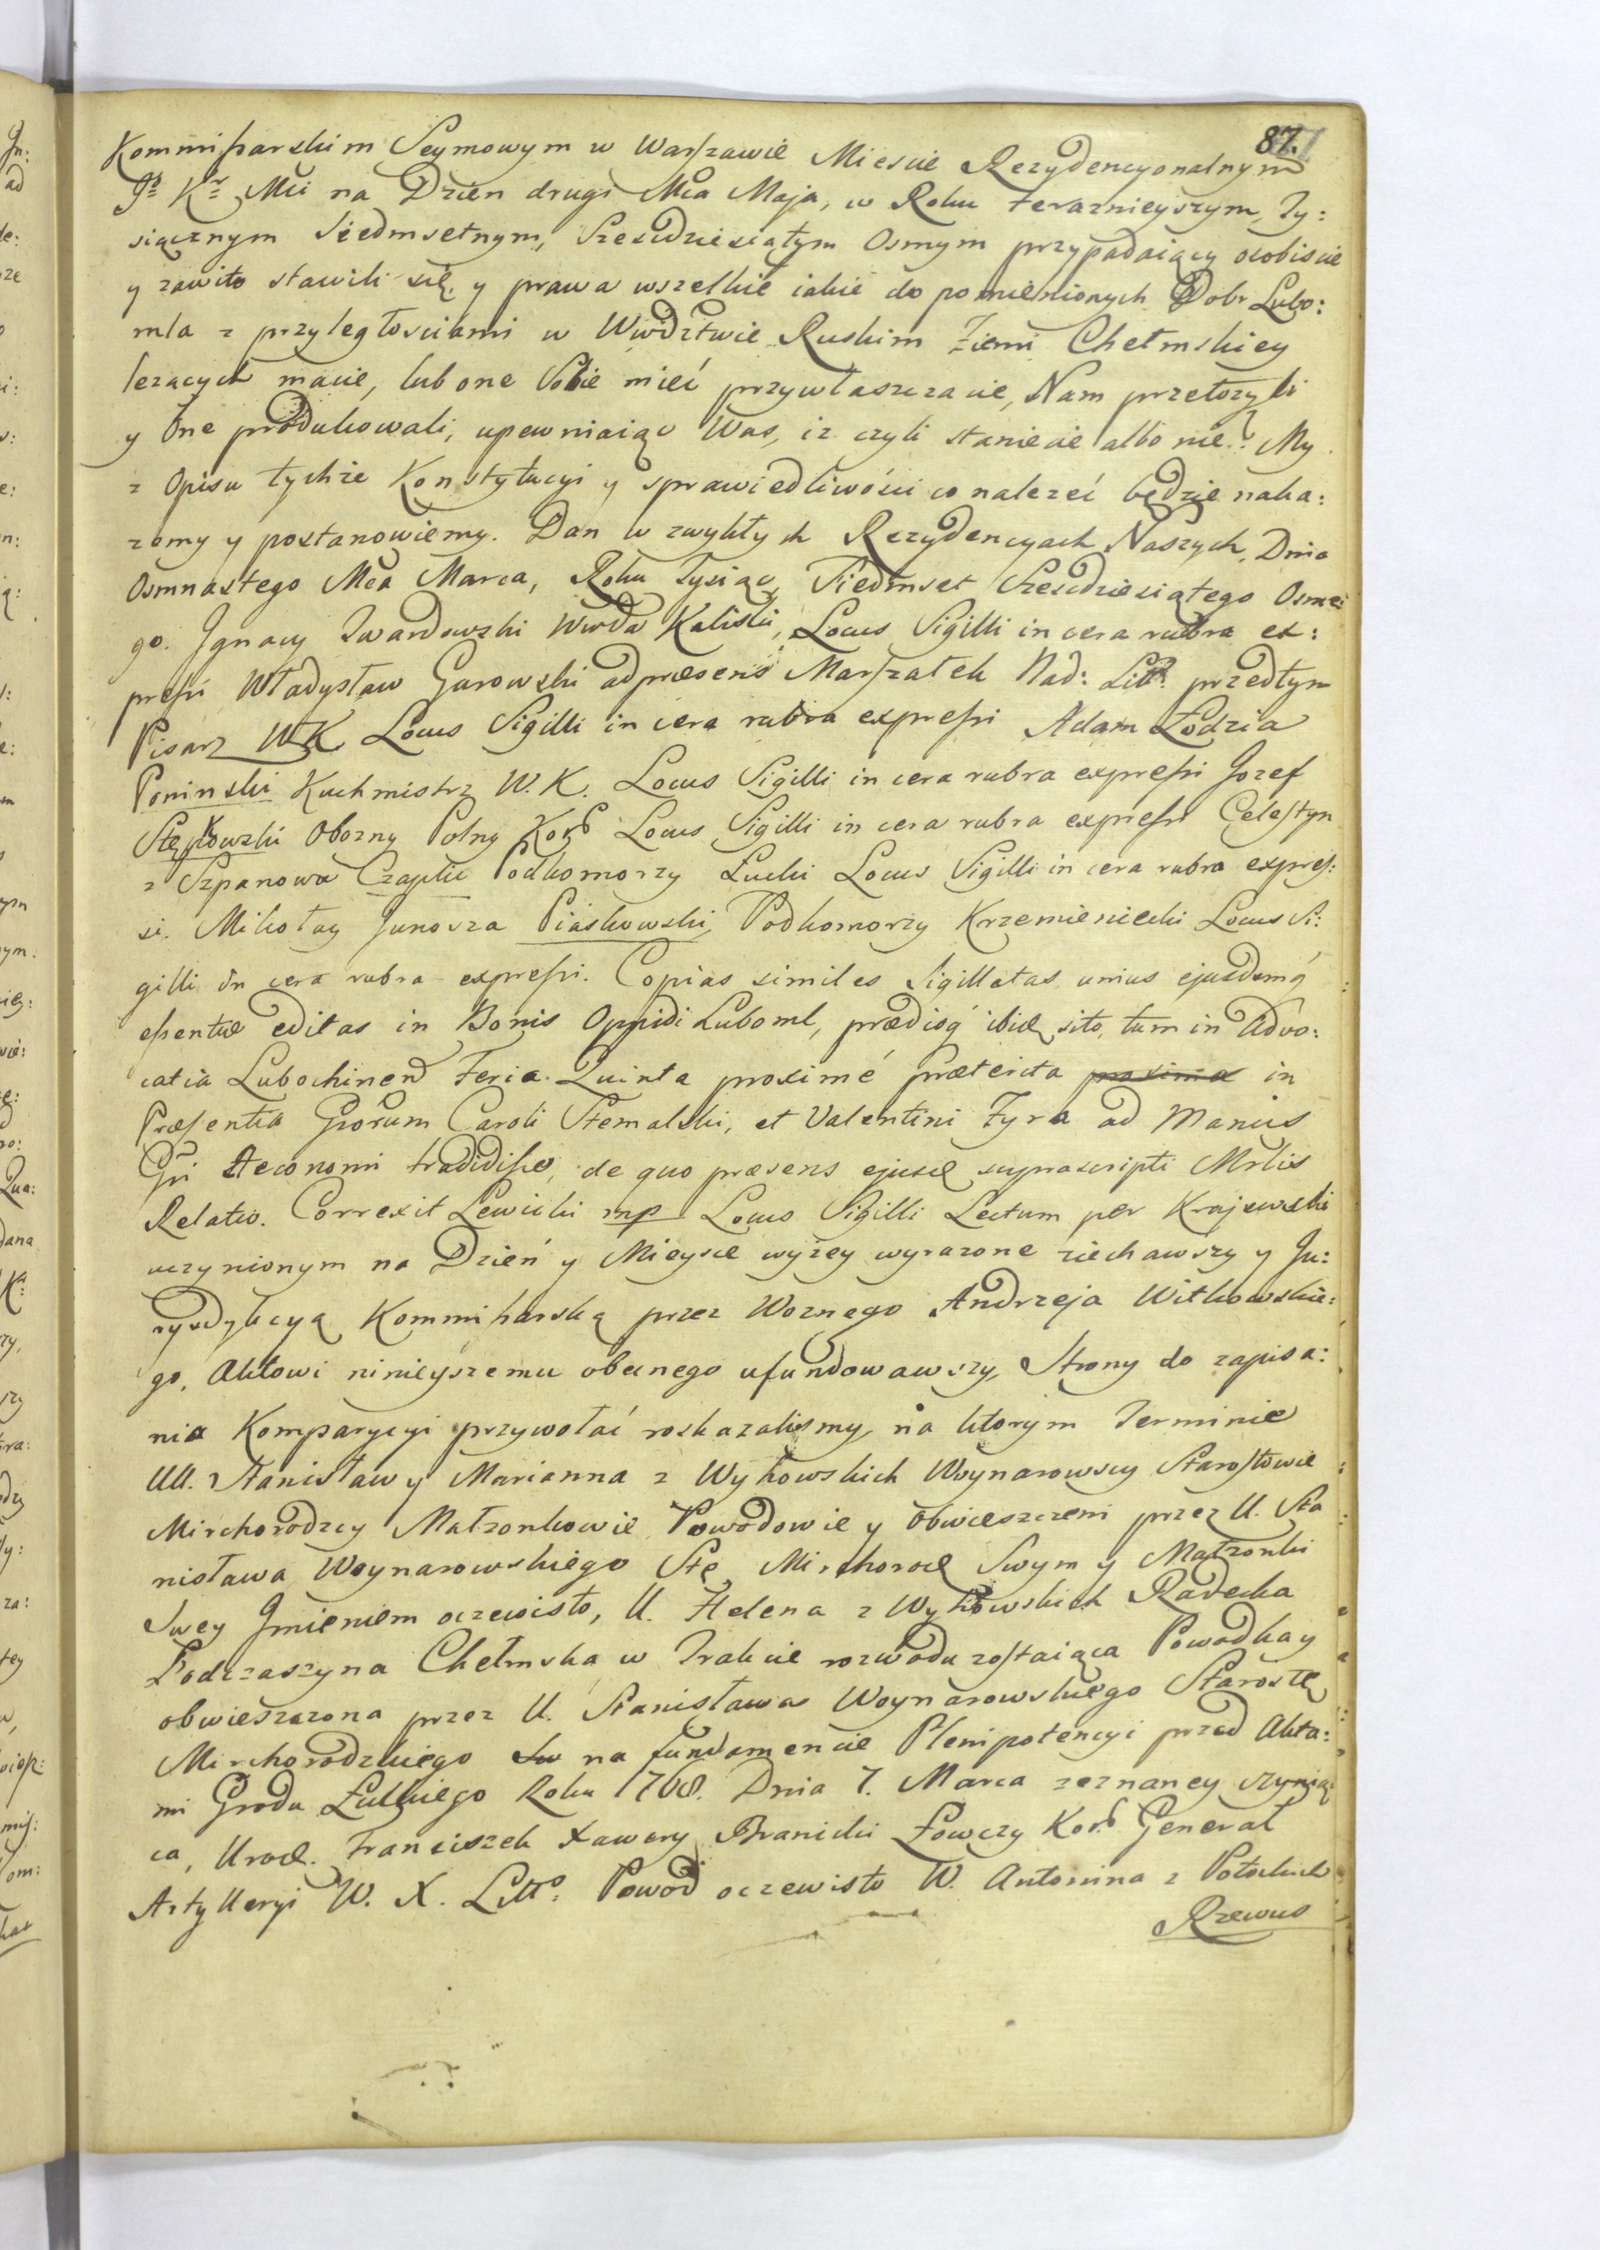 87.
Kommissarskim Seymowym w Warszawie Miescie Rezydencyonalnym
JKr Mci na Dzien drugi Mca Maja, w Roku terazneyszym, Ty:
siącznym Siedmsetnym, Szescdziesiątym Osmym przypadaiący osobiscie
y zawito stawili się, y prawa wszelkie iakie do pomienionych Dobr Lubo:
mla z przyległosciami w Wwdztwie Ruskim Ziemi Chełmskiey
lezacych macie, lub one Sobie mieć przywłaszczacie, Nam przełozyli
y One produkowali, upewniaiąc Was, iz czyli staniecie albo nie. My
z Opisu tychże Konstytucyi y sprawiedliwości co nalezeć będzie naka:
zemy y postanowiemy. Dan w zwykłych Rezydencyach Naszych, Dnia
Osmnastego Mca Marca, Roku Tysiąc Siedmset Szescdziesiątego Osme:
go. Jgnacy Twardowski Wwda Kaliski, Locus Sigilli in cera rubra ex:
pressi Władysław Gurowski adpræsens Marszałek Nad: Litt: przedtym
Pisarz WK Locus Sigilli in cera rubra expressi Adam Łodzia
Poninski Kuchmistrz W. K. Locus Sigilli in cera rubra expressi Jozef
Stępkowski Obozny Polny Kor Locus Sigilli in cera rubra expressi Celestyn
z Szpanowa Czaplic Podkomorzy Łucki Locus Sigilli in cera rubra expres:
si. Mikołay Junosza Piaskowski, Podkomorzy Krzemieniecki Locus Si:
gilli in cera rubra expressi. Copias similes Sigillatas unius ejusdemq
essentiæ editas in Bonis Oppidi Luboml, prædioq ibid sito, tum in Advo:
catia Lubochinen Feria Quinta proximé præterita proxima in
Præsentia Grorum Caroli Stemalski, et Valentini Zyra ad Manus
Gri Aeconomi tradidisse, de quo præsens ejusd suprascripti Mrlis
Relatio. Correxit Lewicki mp Locus Sigilli Lectum per Krajewski
uczynionym na Dzień y Mieysce wyżey wyrazone ziechawszy y Ju:
rysdykcyą Kommissarską przez Woznego Andrzeja Witkowskie:
go, Aktowi ninieyszemu obecnego ufundowawszy, Strony do zapisa:
nia Komparycyi przywołać roskazalismy, na ktorym Terminie
UU. Stanisław y Marianna z Wyhowskich Woynarowscy Starostowie
Mirchorodzcy Małzonkowie Powodowie y obwieszczeni przez U. Sta
nisława Woynarowskiego Stę Mirchorod Swym y Małzonki
Swey Jmieniem oczewisto, U. Helena z Wyhowskich Radecka
Podczaszyna Chełmska w Trakcie rozwodu zostaiąca Powodka y
obwieszczona przez U. Stanisława Woynarowskiego Starostę
Mirchorodzkiego na fundamencie Plenipotencyi przed Akta:
mi Grodu Łuckiego Roku 1768. Dnia 7. Marca zeznaney czynią:
ca, Urod. Franciszek Xawery Branicki Łowczy Kor. Generał
Artylleryi W. X. Litto: Powod oczewisto W. Antonina z Potockich
Rzewus